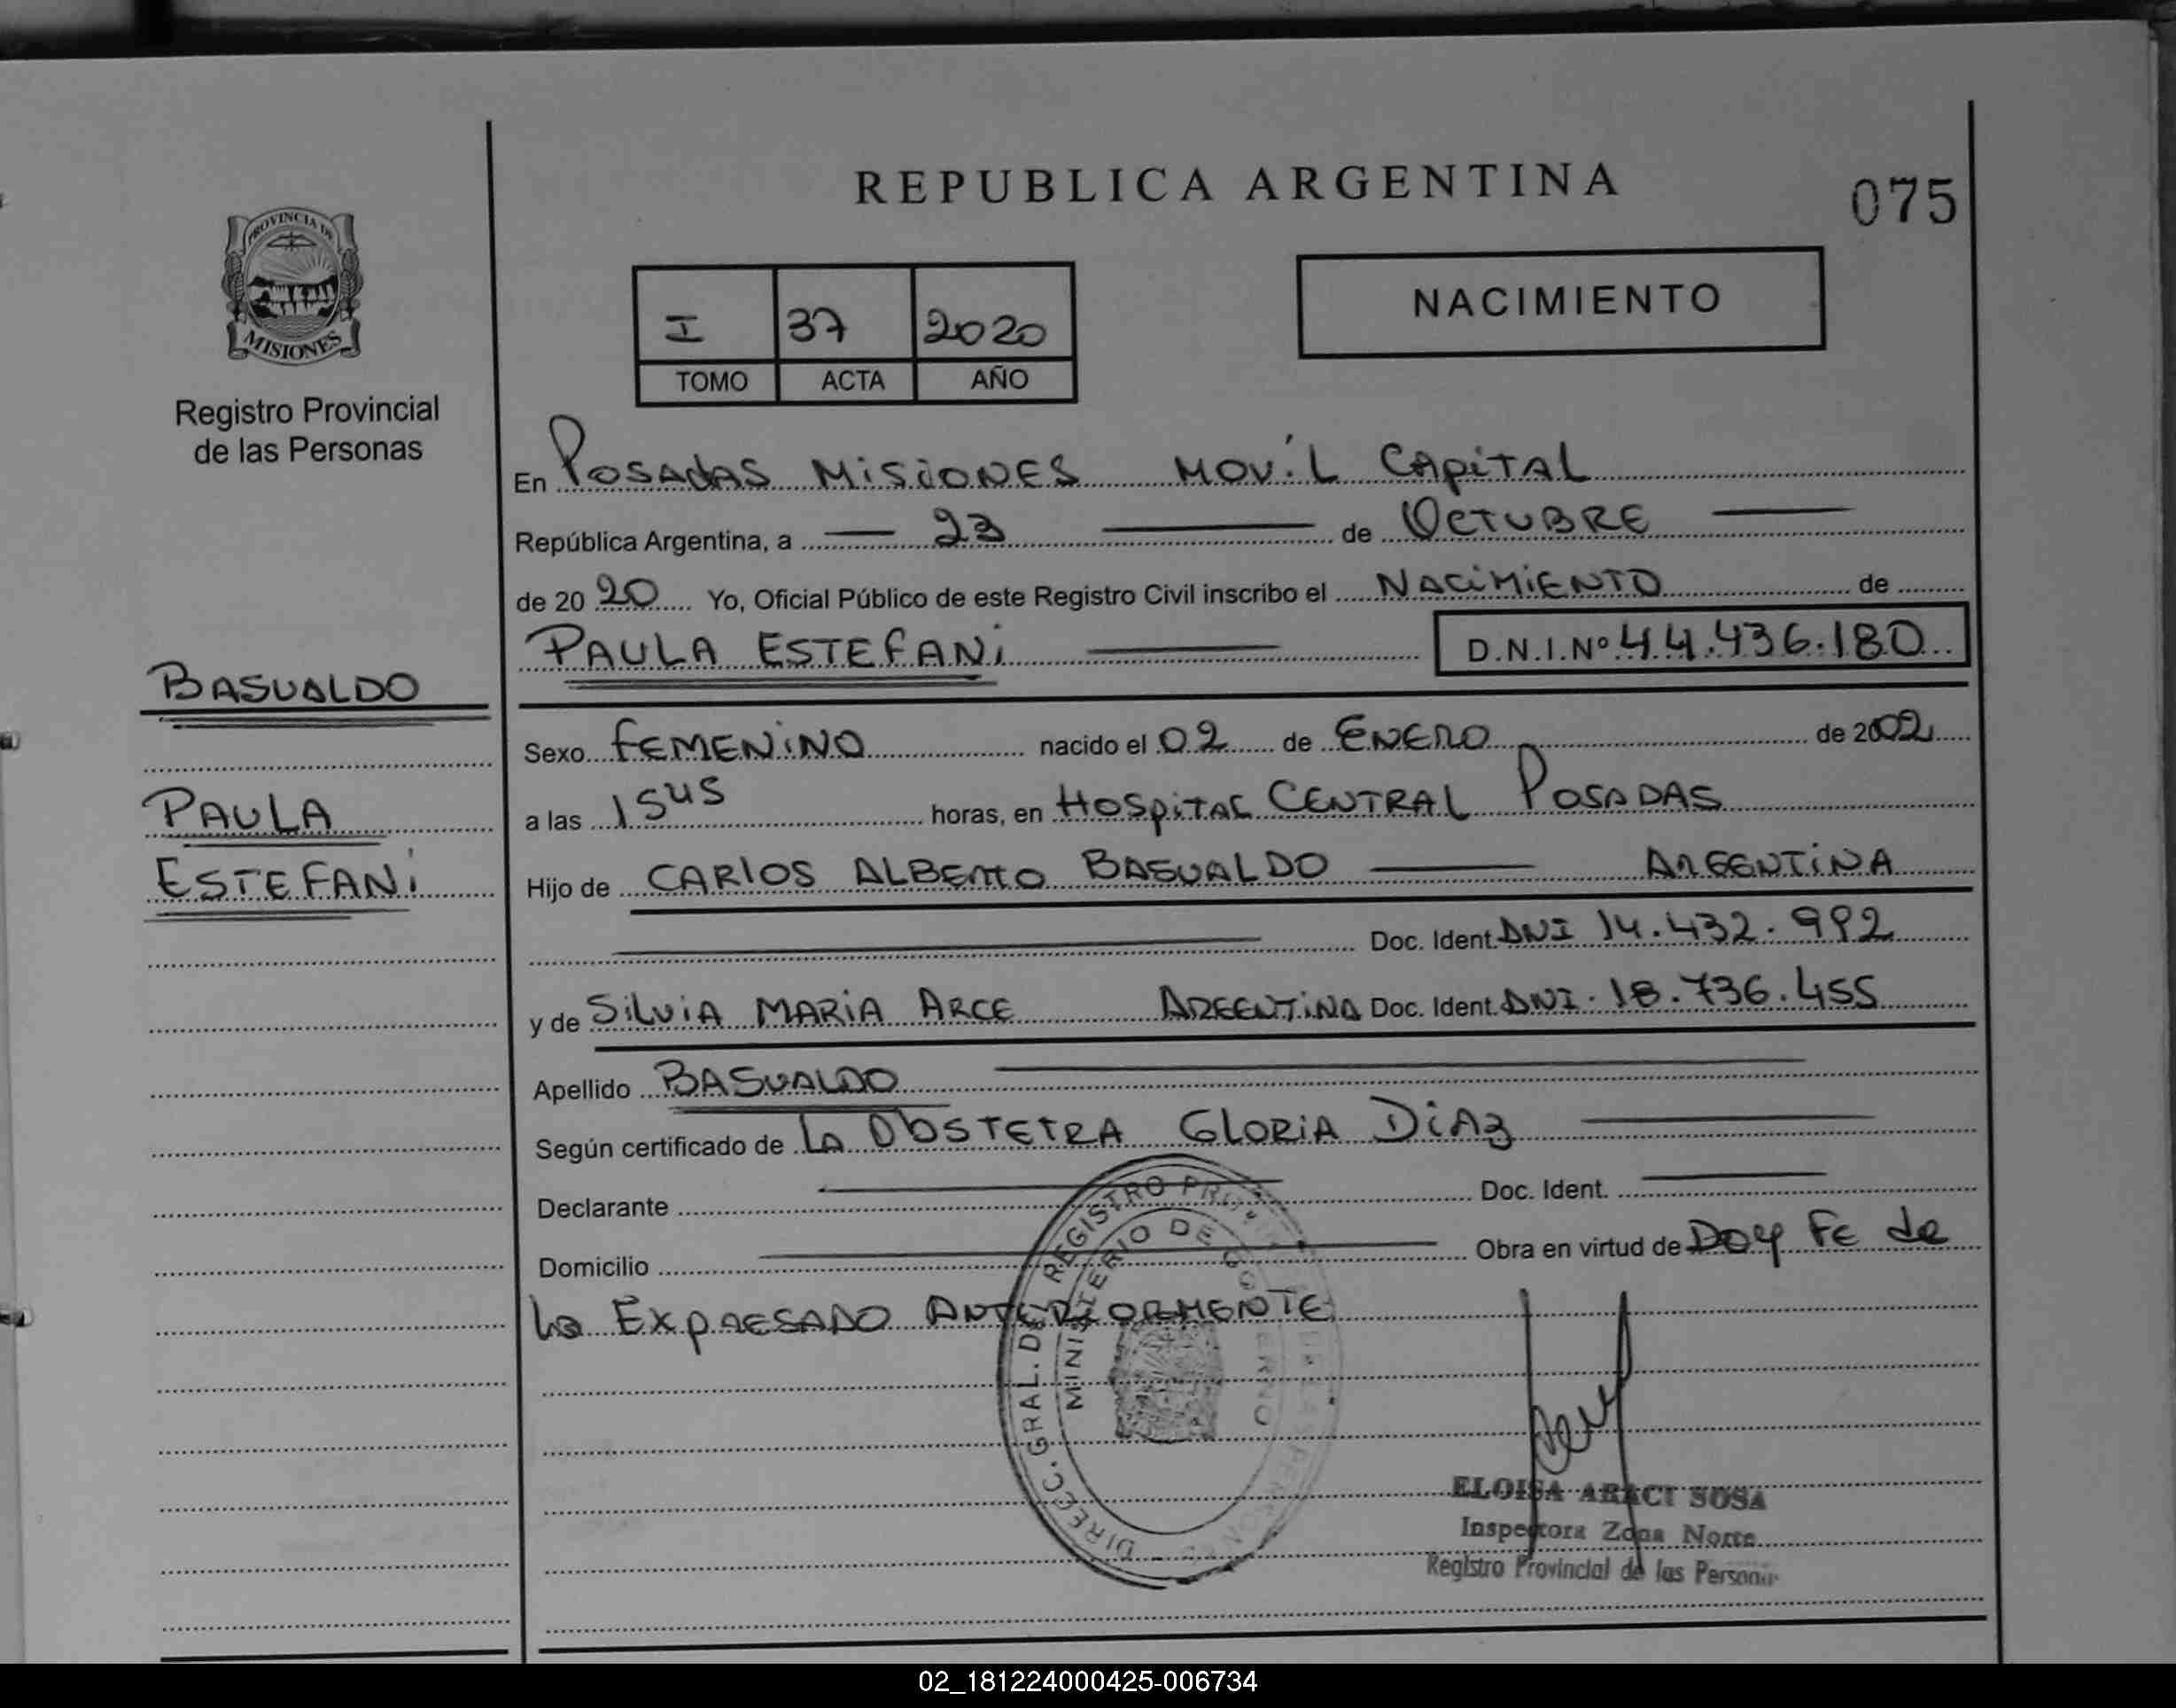 REPUBLICA ARGENTINA
075
PROVINCIA DE
MISIONES
Registro Provincial
de las Personas
I 37 2020
TOMO ACTA AÑO
NACIMIENTO
En Posadas Misiones Movil Capital
República Argentina, a — 23 — de Octubre —
de 20 20 Yo, Oficial Público de este Registro Civil inscribo el Nacimiento de
PAULA ESTEFANi — D.N.I.Nº 44.436.180
BASUALDO
PAULA
ESTEFANi
Sexo Femenino nacido el 02 de Enero de 2002
a las 1545 horas, en Hospital Central Posadas
Hijo de Carlos Alberto Basualdo — Argentina
Doc. Ident. DNI 14.432.992
y de Silvia Maria Arce Argentina Doc. Ident. DNI. 18.736.455
Apellido BASUALDO
Según certificado de La Obstetra Gloria Diaz
Declarante — Doc. Ident. —
Domicilio — Obra en virtud de Doy Fe de
Lo Expresado Anteriormente
DIRECC. GRAL. DE REGISTRO
MINISTERIO DE GOBIERNO
ELOISA ARACI SOSA
Inspectora Zona Norte
Registro Provincial de las Personas
02_181224000425-006734